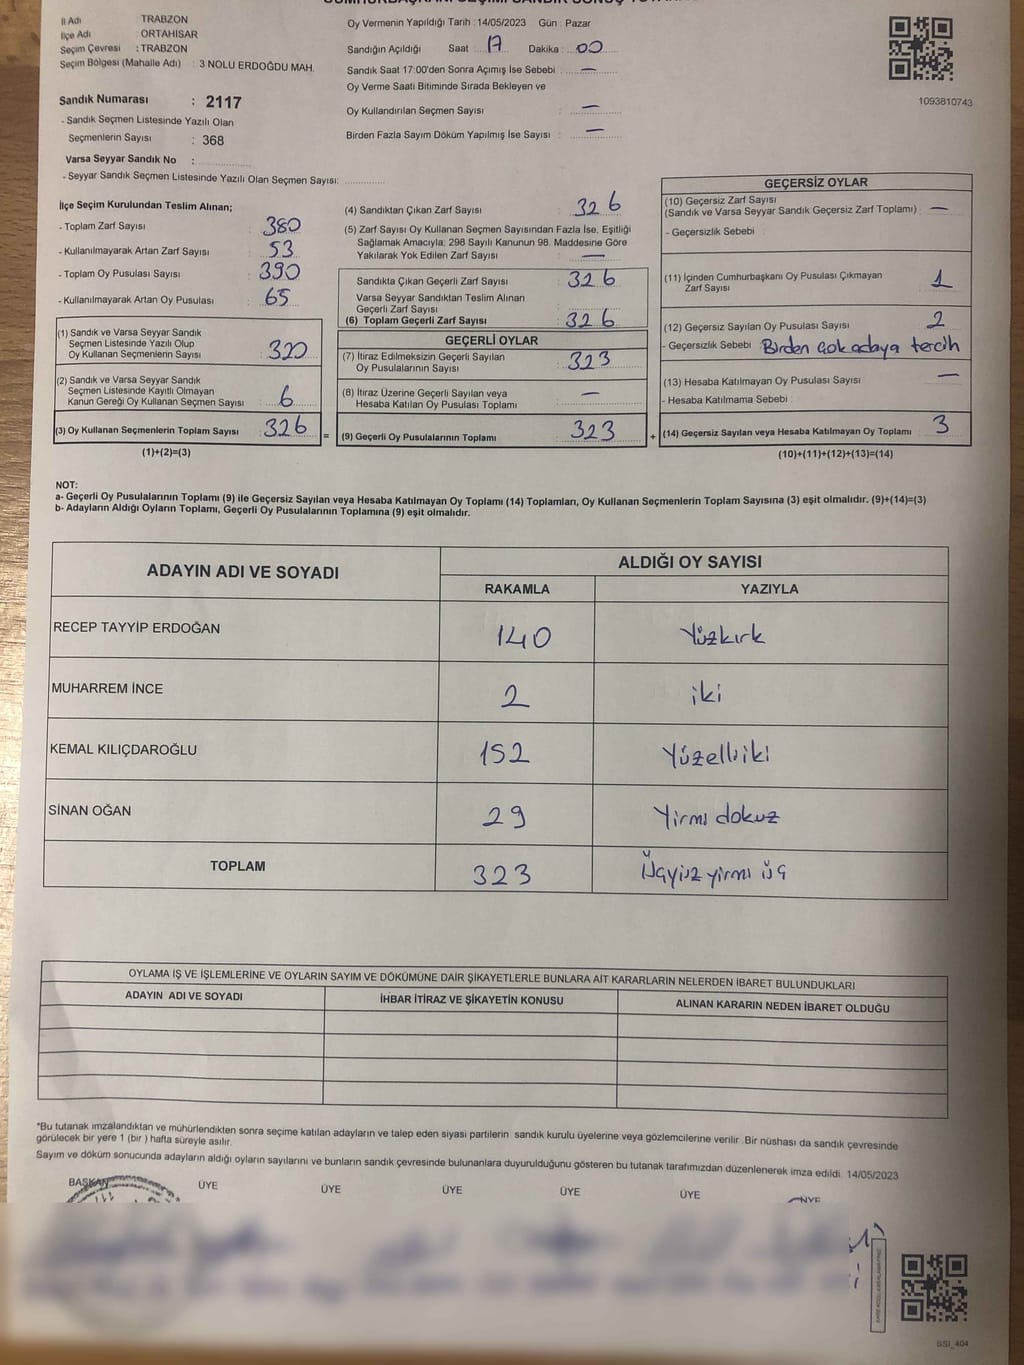 İl Adı TRABZON
İlçe Adı : ORTAHİSAR
Seçim Çevresi : TRABZON
Seçim Bölgesi (Mahalle Adı) : 3 NOLU ERDOĞDU MAH.
Sandık Numarası : 2117
- Sandık Seçmen Listesinde Yazılı Olan
Seçmenlerin Sayısı : 368
Varsa Seyyar Sandık No :
- Seyyar Sandık Seçmen Listesinde Yazılı Olan Seçmen Sayısı:
Oy Vermenin Yapıldığı Tarih : 14/05/2023 Gün : Pazar
Sandığın Açıldığı Saat : 17 Dakika : 00
Sandık Saat 17:00'den Sonra Açımış İse Sebebi : —
Oy Verme Saati Bitiminde Sırada Bekleyen ve
Oy Kullandırılan Seçmen Sayısı : —
Birden Fazla Sayım Döküm Yapılmış İse Sayısı : —
1093810743
İlçe Seçim Kurulundan Teslim Alınan;
- Toplam Zarf Sayısı : 380
- Kullanılmayarak Artan Zarf Sayısı : 53
- Toplam Oy Pusulası Sayısı : 390
- Kullanılmayarak Artan Oy Pusulası : 65
(1) Sandık ve Varsa Seyyar Sandık
Seçmen Listesinde Yazılı Olup
Oy Kullanan Seçmenlerin Sayısı : 320
(2) Sandık ve Varsa Seyyar Sandık
Seçmen Listesinde Kayıtlı Olmayan
Kanun Gereği Oy Kullanan Seçmen Sayısı : 6
(3) Oy Kullanan Seçmenlerin Toplam Sayısı : 326
(1)+(2)=(3)
(4) Sandıktan Çıkan Zarf Sayısı : 326
(5) Zarf Sayısı Oy Kullanan Seçmen Sayısından Fazla İse, Eşitliği
Sağlamak Amacıyla; 298 Sayılı Kanunun 98. Maddesine Göre
Yakılarak Yok Edilen Zarf Sayısı : —
Sandıkta Çıkan Geçerli Zarf Sayısı : 326
Varsa Seyyar Sandıktan Teslim Alınan
Geçerli Zarf Sayısı :
(6) Toplam Geçerli Zarf Sayısı : 326
GEÇERLİ OYLAR
(7) İtiraz Edilmeksizin Geçerli Sayılan
Oy Pusulalarının Sayısı : 323
(8) İtiraz Üzerine Geçerli Sayılan veya
Hesaba Katılan Oy Pusulası Toplamı : —
= (9) Geçerli Oy Pusulalarının Toplamı : 323
GEÇERSİZ OYLAR
(10) Geçersiz Zarf Sayısı
(Sandık ve Varsa Seyyar Sandık Geçersiz Zarf Toplamı) : —
- Geçersizlik Sebebi :
(11) İçinden Cumhurbaşkanı Oy Pusulası Çıkmayan
Zarf Sayısı : 1
(12) Geçersiz Sayılan Oy Pusulası Sayısı : 2
- Geçersizlik Sebebi : Birden çok adaya tercih
(13) Hesaba Katılmayan Oy Pusulası Sayısı : —
- Hesaba Katılmama Sebebi :
+ (14) Geçersiz Sayılan veya Hesaba Katılmayan Oy Toplamı : 3
(10)+(11)+(12)+(13)=(14)
NOT:
a- Geçerli Oy Pusulalarının Toplamı (9) ile Geçersiz Sayılan veya Hesaba Katılmayan Oy Toplamı (14) Toplamları, Oy Kullanan Seçmenlerin Toplam Sayısına (3) eşit olmalıdır. (9)+(14)=(3)
b- Adayların Aldığı Oyların Toplamı, Geçerli Oy Pusulalarının Toplamına (9) eşit olmalıdır.
ADAYIN ADI VE SOYADI ALDIĞI OY SAYISI
RAKAMLA YAZIYLA
RECEP TAYYİP ERDOĞAN 140 Yüzkırk
MUHARREM İNCE 2 iki
KEMAL KILIÇDAROĞLU 152 Yüzelliiki
SİNAN OĞAN 29 Yirmi dokuz
TOPLAM 323 Üçyüz yirmi üç
OYLAMA İŞ VE İŞLEMLERİNE VE OYLARIN SAYIM VE DÖKÜMÜNE DAİR ŞİKAYETLERLE BUNLARA AİT KARARLARIN NELERDEN İBARET BULUNDUKLARI
ADAYIN ADI VE SOYADI İHBAR İTİRAZ VE ŞİKAYETİN KONUSU ALINAN KARARIN NEDEN İBARET OLDUĞU
*Bu tutanak imzalandıktan ve mühürlendikten sonra seçime katılan adayların ve talep eden siyasi partilerin sandık kurulu üyelerine veya gözlemcilerine verilir .Bir nüshası da sandık çevresinde
görülecek bir yere 1 (bir ) hafta süreyle asılır.
Sayım ve döküm sonucunda adayların aldığı oyların sayılarını ve bunların sandık çevresinde bulunanlara duyurulduğunu gösteren bu tutanak tarafımızdan düzenlenerek imza edildi. 14/05/2023
BAŞKAN ÜYE ÜYE ÜYE ÜYE ÜYE ÜYE
SSI_404